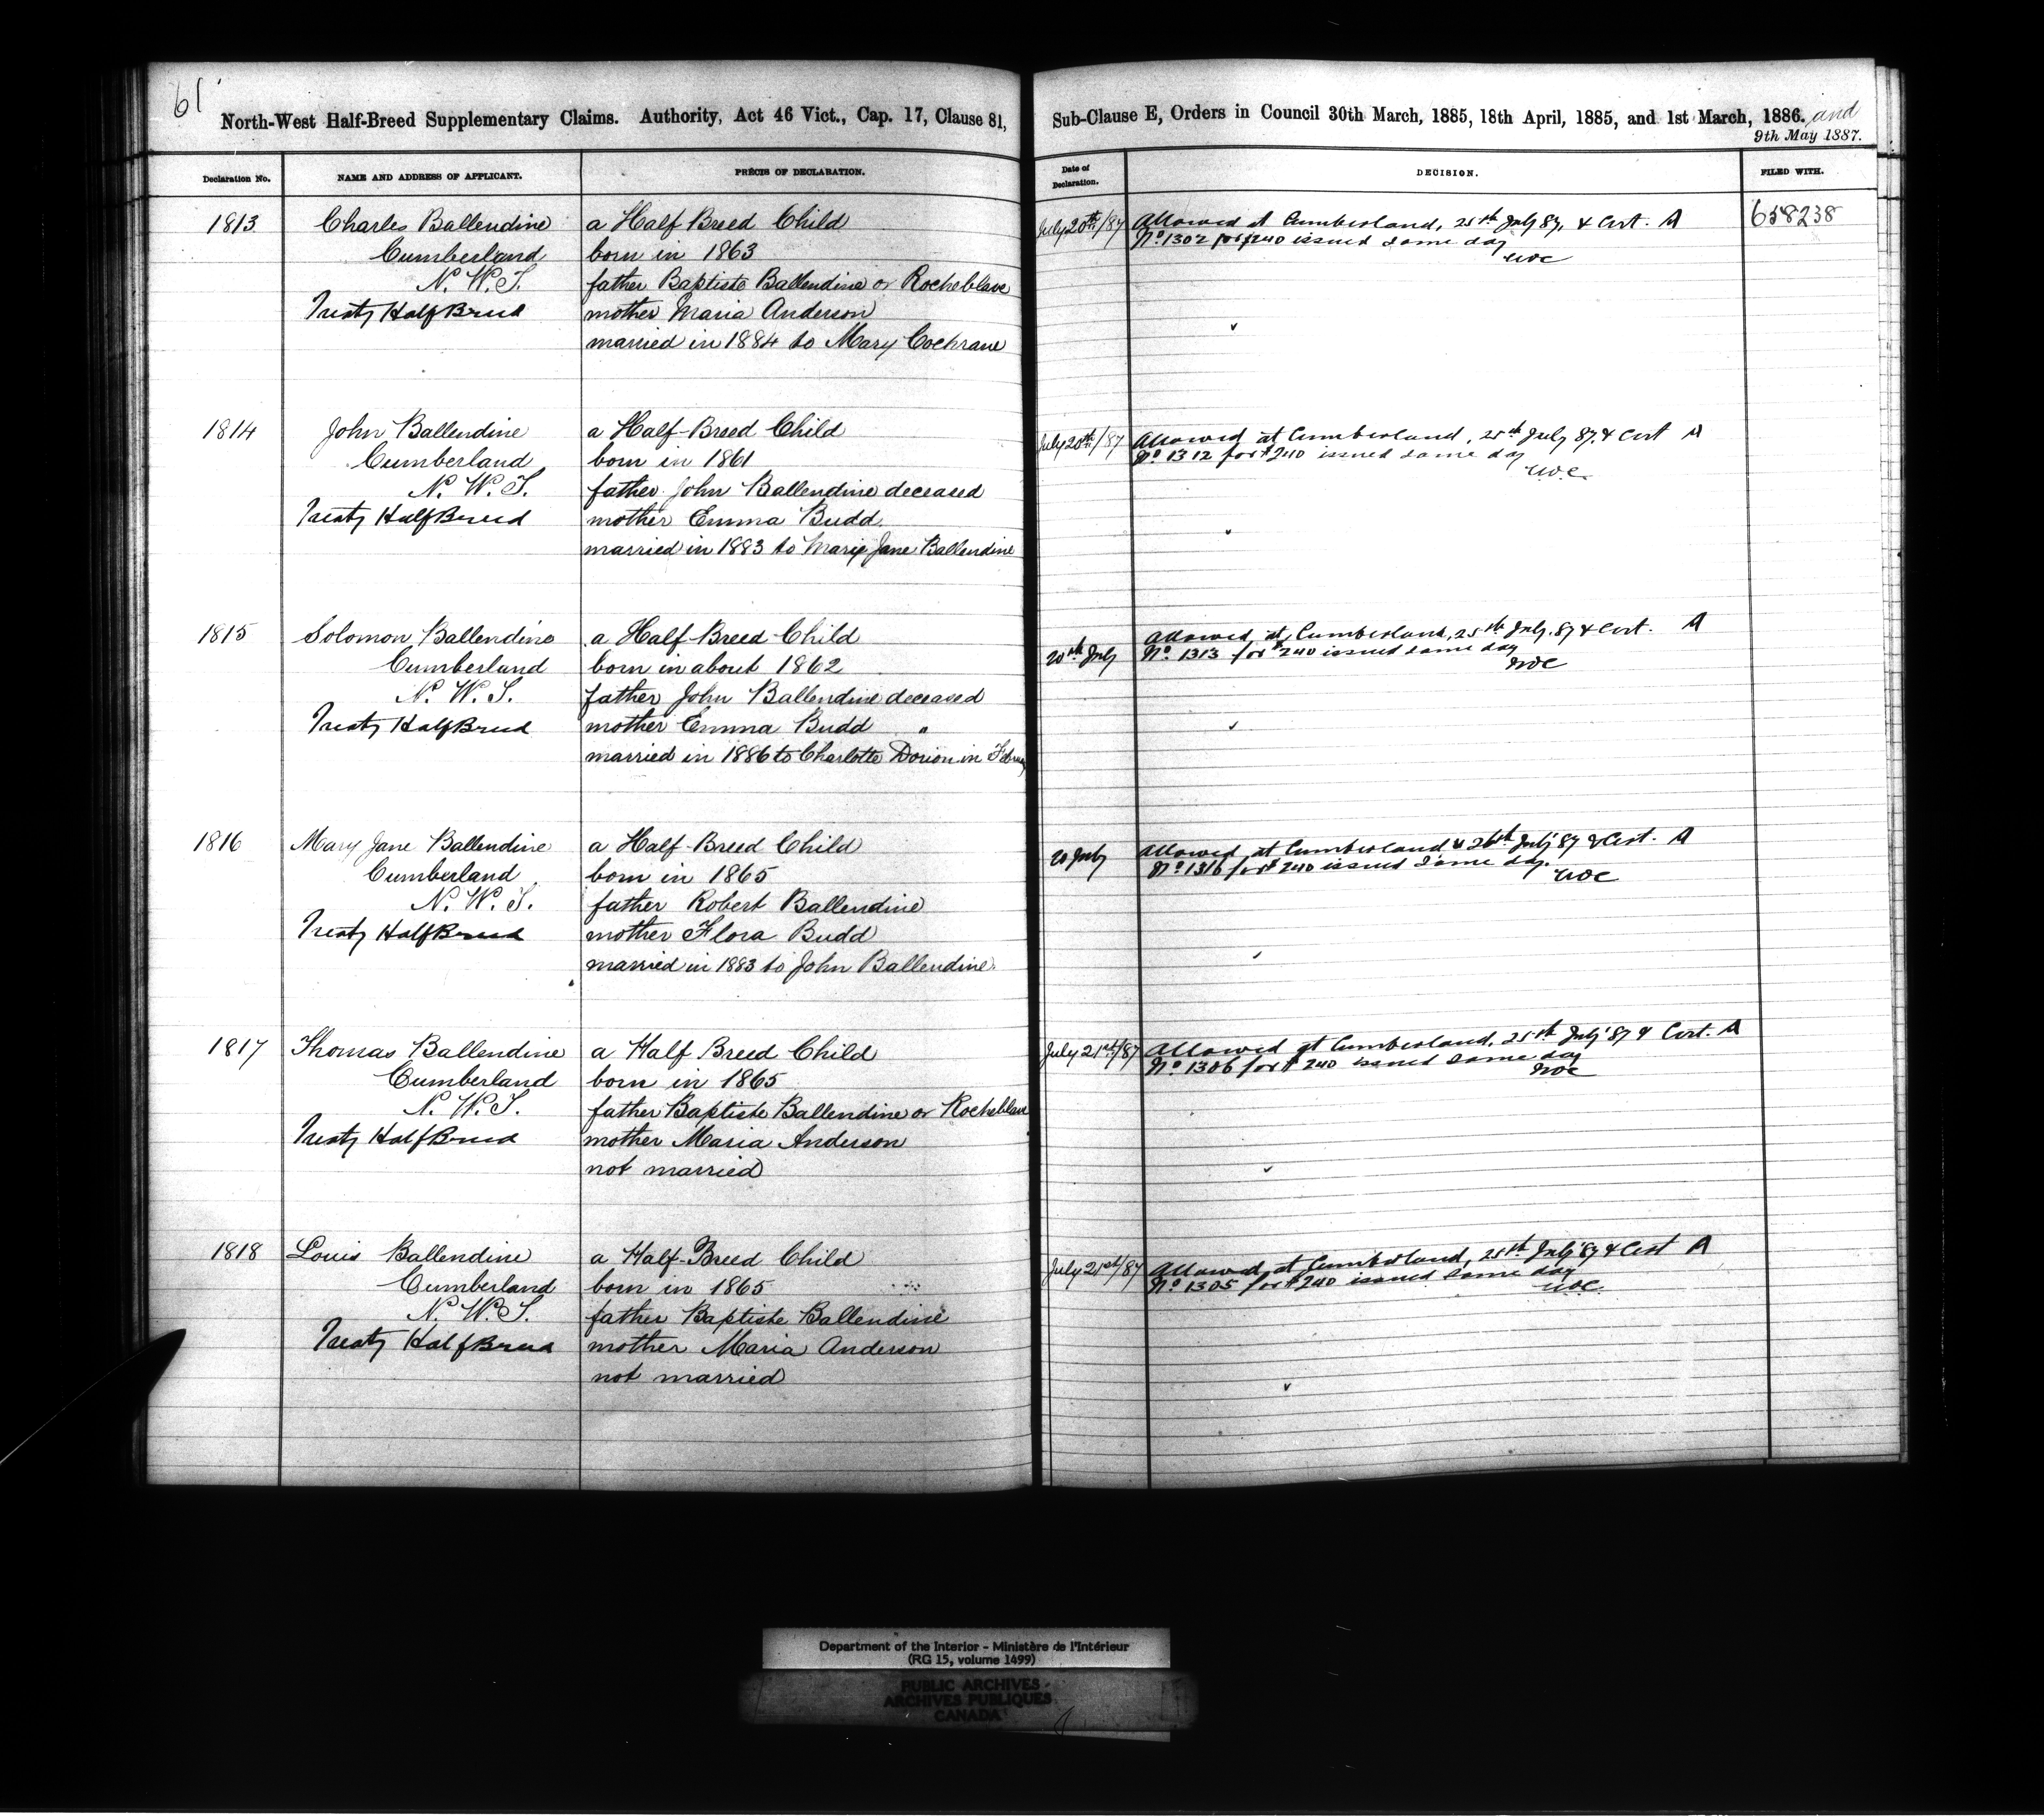 61
North-West Half-Breed Supplementary Claims. Authority, Act 46 Vict., Cap. 17, Clause 81,
Sub-Clause E, Orders in Council 30th March, 1885, 18th April, 1885, and 1st March, 1886. and
9th May 1887.
Declaration No.
NAME AND ADDRESS OF APPLICANT.
PRÉCIS OF DECLARATION.
Date of
Declaration.
DECISION.
FILED WITH.
1813
Charles Ballendine
Cumberland
N. W. T.
Treaty Half Breed
a Half Breed Child
born in 1863
father Baptiste Ballendine or Rocheblave
mother Maria Anderson
married in 1884 to Mary Cochrane
July 20th/87
Allowed at Cumberland, 25th July 87, & Cert. A
No 1302 for $240 issued same day
658238
1814
John Ballendine
Cumberland
N. W. T.
Treaty Half Breed
a Half-Breed Child
born in 1861
father John Ballendine deceased
mother Emma Budd
married in 1883 to Mary Jane Ballendine
July 20th/87
Allowed at Cumberland, 25th July 87, & Cert A
No 1312 for $240 issued same day
1815
Solomon Ballendine
Cumberland
N. W. T.
Treaty Half Breed
a Half-Breed Child
born in about 1862
father John Ballendine deceased
mother Emma Budd "
married in 1886 to Charlotte Dorion in
20th July
Allowed at Cumberland, 25th July. 87 & Cert. A
No 1313 for $240 issued same day
1816
Mary Jane Ballendine
Cumberland
N. W. T.
Treaty Half Breed
a Half-Breed Child
born in 1865
father Robert Ballendine
mother Flora Budd
married in 1883 to John Ballendine.
20 July
Allowed at Cumberland 26th July '87 & Cert. A
No 1316 for $240 issued same day.
1817
Thomas Ballendine
Cumberland
N. W. T.
Treaty Half Breed
a Half Breed Child
born in 1865
father Baptiste Ballendine or Rocheblave
mother Maria Anderson
not married
July 21st/87
Allowed at Cumberland, 25th July '87 & Cert. A
No 1306 for $240 issued same day
1818
Louis Ballendine
Cumberland
N. W. T.
Treaty Half Breed
a Half-Breed Child
born in 1865
father Baptiste Ballendine
mother Maria Anderson
not married
July 21st/87
Allowed at Cumberland, 25th July '87 & Cert A
No 1305 for $240 issued same day
Department of the Interior - Ministère de l'Intérieur
(RG 15, volume 1499)
PUBLIC ARCHIVES
ARCHIVES PUBLIQUES
CANADA